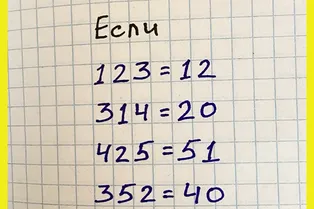 Если
123=12
314=20
425=51
352=40